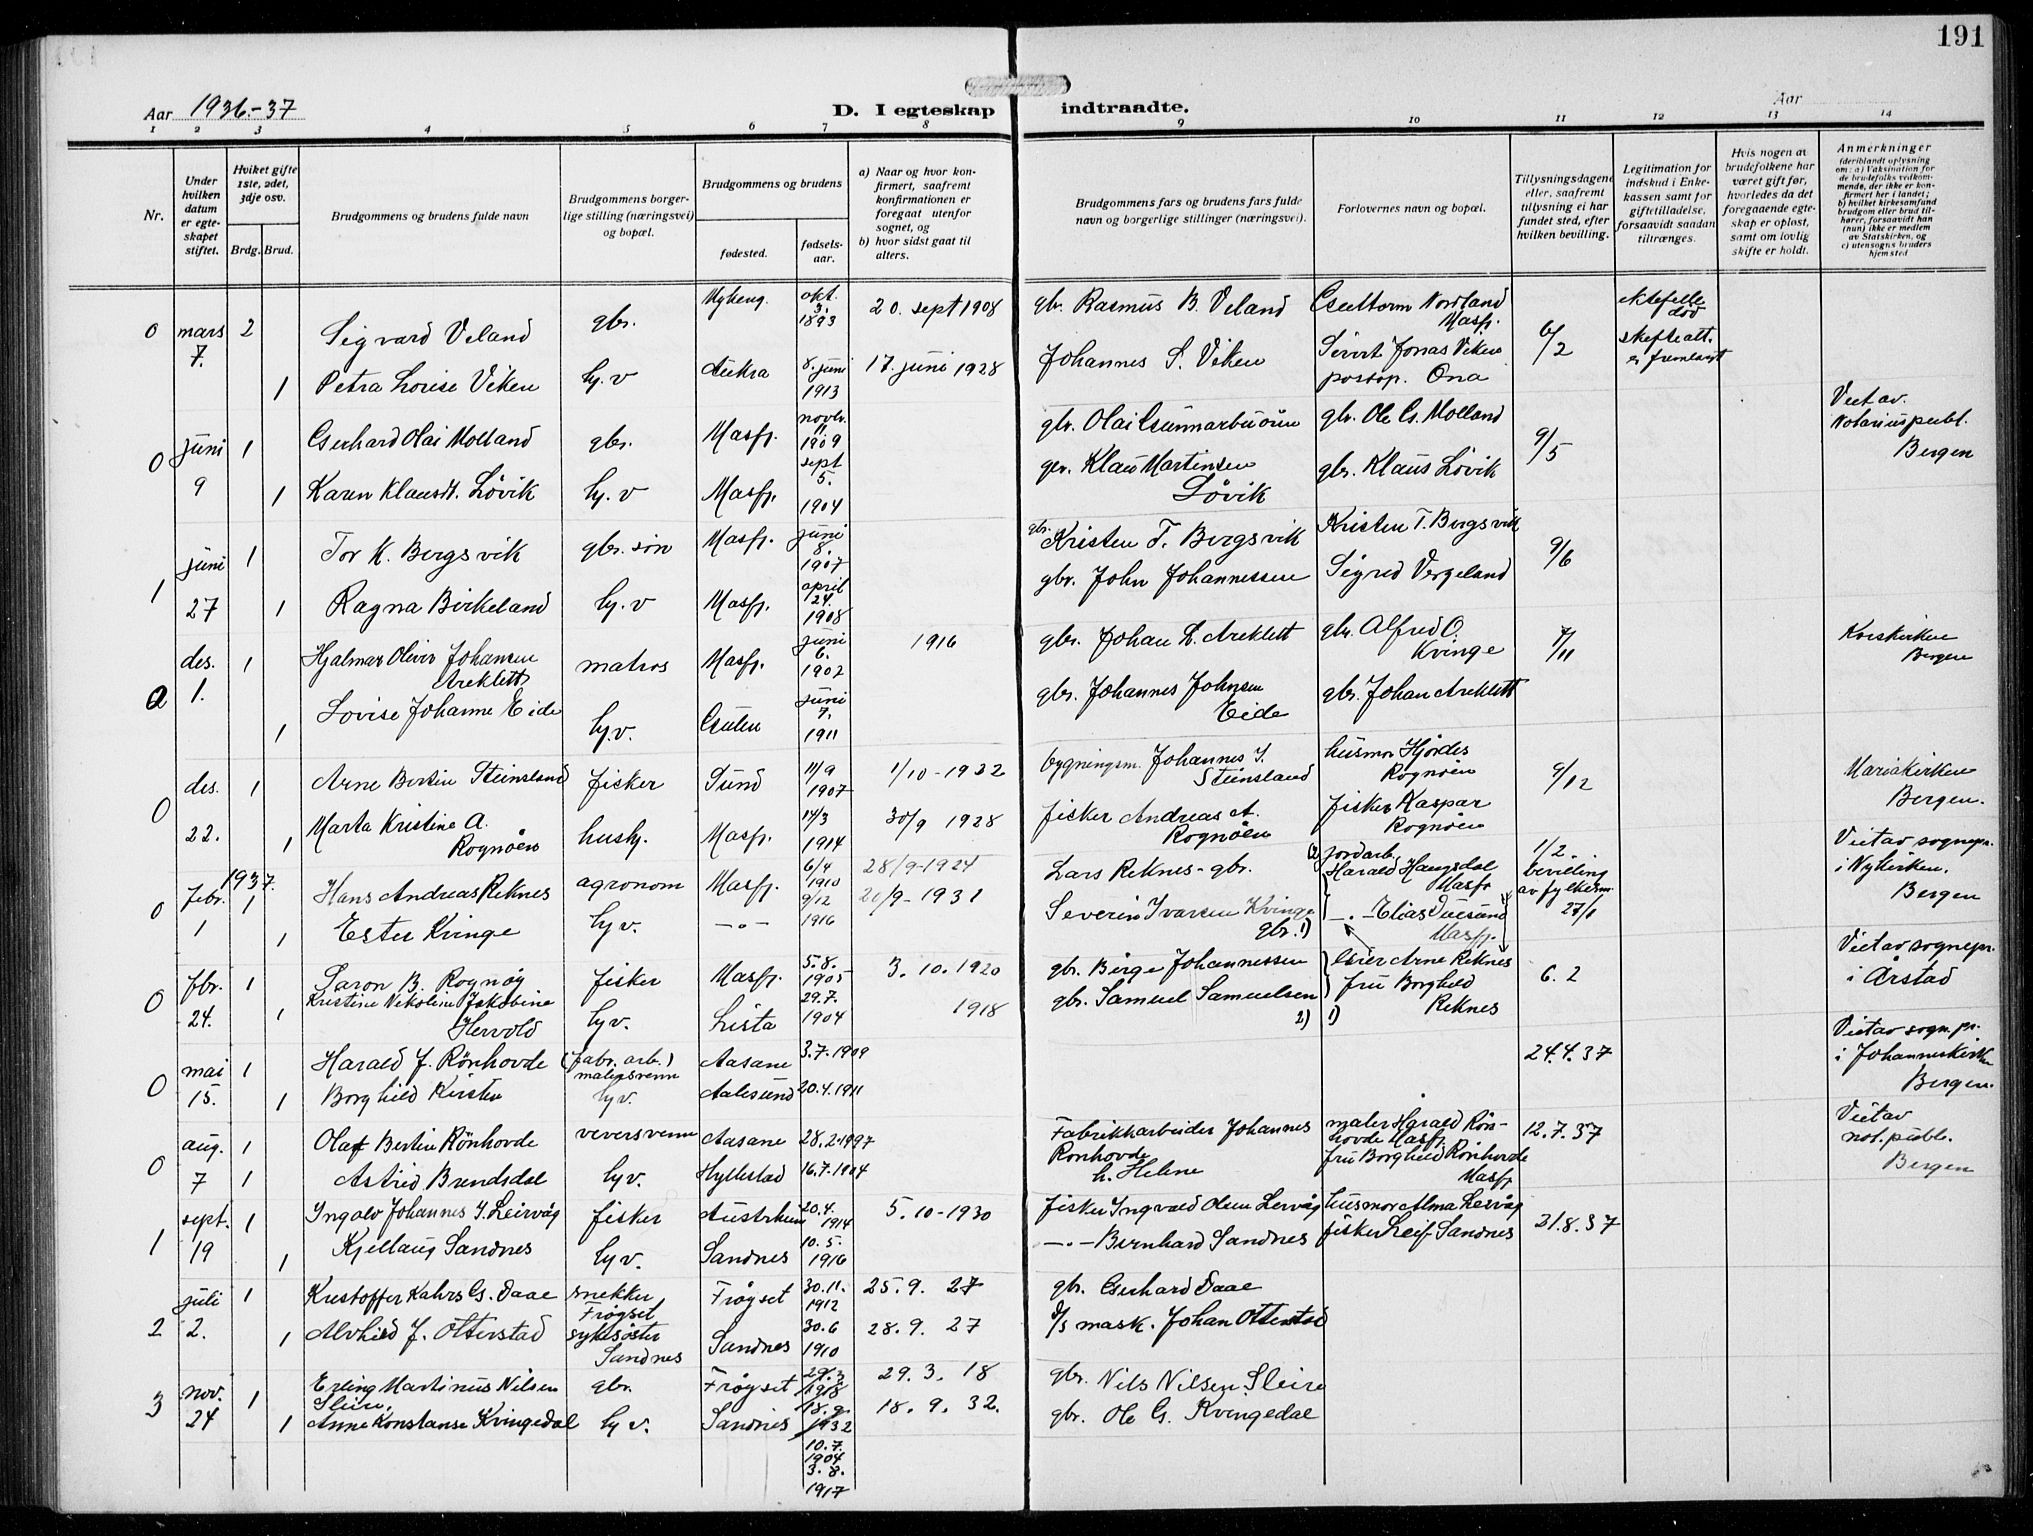 191
Aar 1936-37
D. I egteskap indtraadte.
Aar
1 2 3 4 5 6 7 8 9 10 11 12 13 14
Nr.
Under hvilken datum er egteskapet stiftet.
Hvilket gifte 1ste, 2det, 3dje osv.
Brdg. Brud.
Brudgommens og brudens fulde navn
Brudgommens borgerlige stilling (næringsvei) og bopæl.
Brudgommens og brudens
fødested. fødselsaar.
a) Naar og hvor konfirmert, saafremt konfirmationen er foregaat utenfor sognet, og
b) hvor sidst gaat til alters.
Brudgommens fars og brudens fars fulde navn og borgerlige stillinger (næringsvei).
Forlovernes navn og bopæl.
Tillysningsdagene eller, saafremt tillysning ei har fundet sted, efter hvilken bevilling.
Legitimation for indskud i Enkekassen samt for giftetilladelse, forsaavidt saadan tiltrænges.
Hvis nogen at brudefolkene har været gift før, hvorledes da det foregaaende egteskap er opløst, samt om lovlig skifte er holdt.
Anmerkninger (deriblandt oplysning om: a) Vaksination for de brudefolks vedkommende, der ikke er konfirmert her i landet; b) hvilket kirkesamfund brudgom eller brud tilhører, forsaavidt han (hun) ikke er medlem av Statskirken, og c) utensogns bruders hjemsted
0 mars 7. 2 Sigvard Veland gbr. Mykeng. okt. 3. 1893 20. sept 1908 gbr. Rasmus B. Veland Gulltorm Nordland Masfj. 6/2 ektefelle død skifteatt. er fremlagt
1 Petra Lovise Viken hj. v Aukra 8. juni 1913 17. juni 1928 Johannes S. Viken Sivert Jonas Viken postop. Ona
0 juni 9 1 Gerhard Olai Molland gbr. Masfj. novbr. 11. 1909 gbr. Olai Gunnarbuøen gbr. Ole G. Molland 9/5 Viet av Notarius publ. Bergen
1 Karen Klausdt. Løvik hj. v Masfj. sept 5. 1904 gbr. Klaus Martinsen Løvik gbr. Klaus Løvik
1 juni 27 1 Tor K. Bergsvik gbr. søn Masfj. juni 8. 1907 gbr. Kristen T. Bergsvik Kristen T. Bergsvik 9/6
1 Ragna Birkeland hj. v Masfj. april 24. 1908 gbr. John Johannessen Sigred Vergeland
0 des. 1. 1 Hjalmar Oliver Johansen Areklett matros Masfj. juni 6. 1902 1916 gbr. Johan L. Areklett gbr. Alfred O. Kvinge 7/11 Korskirken Bergen
1 Lovise Johanne Eide hj.v. Gulen juni 7. 1911 gbr. Johannes Johnsen Eide gbr. Johan Areklett
0 des. 22. 1 Arne Bertin Steinsland fisker Sund 11/9 1907 1/10-1932 bygningsm. Johannes I. Steinsland husmor Hjørdis Rognøen 9/12 Mariakirken Bergen.
1 Marta Kristine A. Rognøen hushj. Masfj. 14/3 1914 30/9 1928 fisker Andreas A. Rognøen fisker Kaspar Rognøen
1937.
0 febr. 1 1 Hans Andreas Reknes agronom Masfj. 6/4 1910 28/9-1924 Lars Reknes - gbr. 2) jordarb. Harald Haugsdal Masfj 1/2. bevilling av fylkesm. 27/1 Viet av sognepr. i Nykirken. Bergen
1 Ester Kvinge hj v. -"- 9/12 1916 20/9-1931 Severin Ivarsen Kvinge gbr. 1) -"- Elias Duesund Masfj.
0 fbr. 24. 1 Saron B. Rognøy fisker Masfj. 5.8. 1905 3. 10. 1920 gbr. Børge Johannessen lærer Arne Reknes 6. 2 Viet av sognepr. i Årstad
1 Kristine Nikoline Jakobine Hervold hj v. Lista 29.7. 1904 1918 gbr. Samuel Samuelsen 2) fru Borghild Reknes 1)
0 mai 15. 1 Harald J. Rönhovde (fabr. arb.) malersvenn Aasane 3.7.1909 24.4.37 Viet av sogn.pr. i Johanneskirk Bergen.
1 Borghild Kirsten hj v. Aalesund 20.4.1911
0 aug. 7 1 Olaf Bertin Rönhovde veversvenn Aasane 28.2.1897 Fabrikkarbeider Johannes Rønhovde h. Helene maler Harald Rönhovde Masfj. 12.7.37 Viet av not.publ. Bergen
1 Astrid Brendsdal hj v. Hyllestad 16.7.1904 fru Borghild Rönhovde Masfj
1 sept. 19 1 Ingolv Johannes I. Leirvåg fisker Austrheim 20.4. 1914 5. 10-1930 fisker Ingvald Olsen Leirvåg husmor Alma Leirvåg 21.8.37
1 Kjellaug Sandnes hj v. Sandnes 10.5. 1916 -"- Bernhard Sandnes fisker Leif Sandnes
2 juli 2. 1 Kristoffer Kahrs G. Daae snekker Frøyset Frøyset 30.11. 1912 25. 9. 27 gbr. Gerhard Daae
1 Alvhild J. Otterstad sykesøster Sandnes Sandnes 30.6 1910 28. 9. 27 d/s mask. Johan Otterstad
3 nov. 24 1 Erling Martinus Nilsen Sleire gbr. Frøyset 29.3 1918 29. 3. 18 gbr. Nils Nilsen Sleire
1 Anne Konstanse Kvingedal hj v. Sandnes 18.9. 1932 18. 9. 32. gbr. Ole G. Kvingedal
10.7. 1904
3.8. 1917